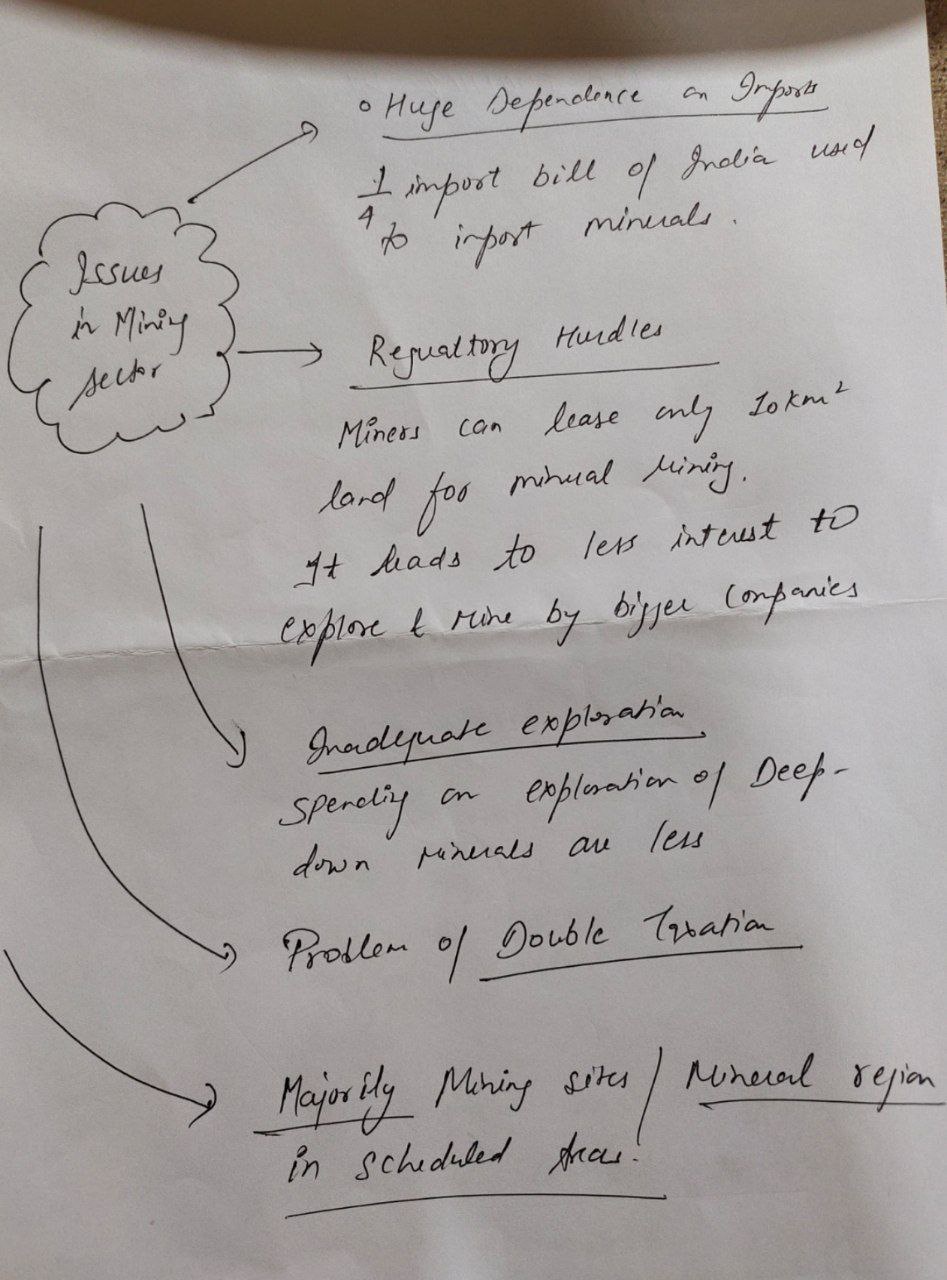 Issues
in Mining
sector
° Huge Dependence on Imports
1/4 import bill of India used
to import minerals.
Regualtory Hurdles
Miners can lease only 10km²
land for mineral Mining.
It leads to less interest to
explore & Mine by bigger Companies
Inadequate exploration
Spending on exploration of Deep-
down Minerals are less
Problem of Double Taxation
Majority Mining sites / Mineral region
in scheduled Areas.